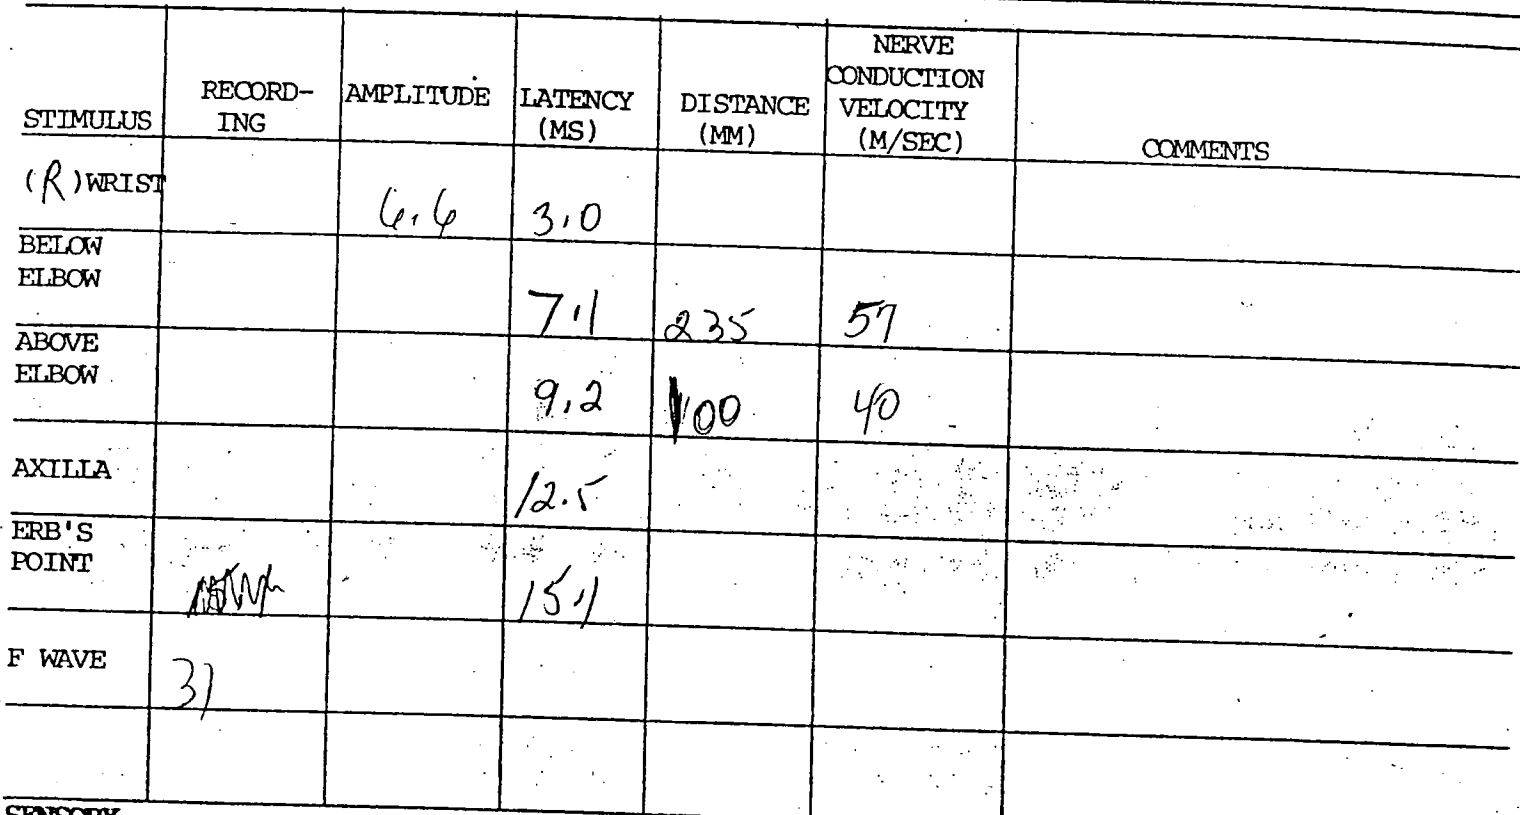 STIMULUS RECORD-ING AMPLITUDE LATENCY (MS) DISTANCE (MM) NERVE CONDUCTION VELOCITY (M/SEC) COMMENTS
(R) WRIST 6.6 3.0
BELOW ELBOW 7.1 235 57
ABOVE ELBOW 9.2 100 40
AXILLA 12.5
ERB'S POINT 15.1
F WAVE 31
SENSORY